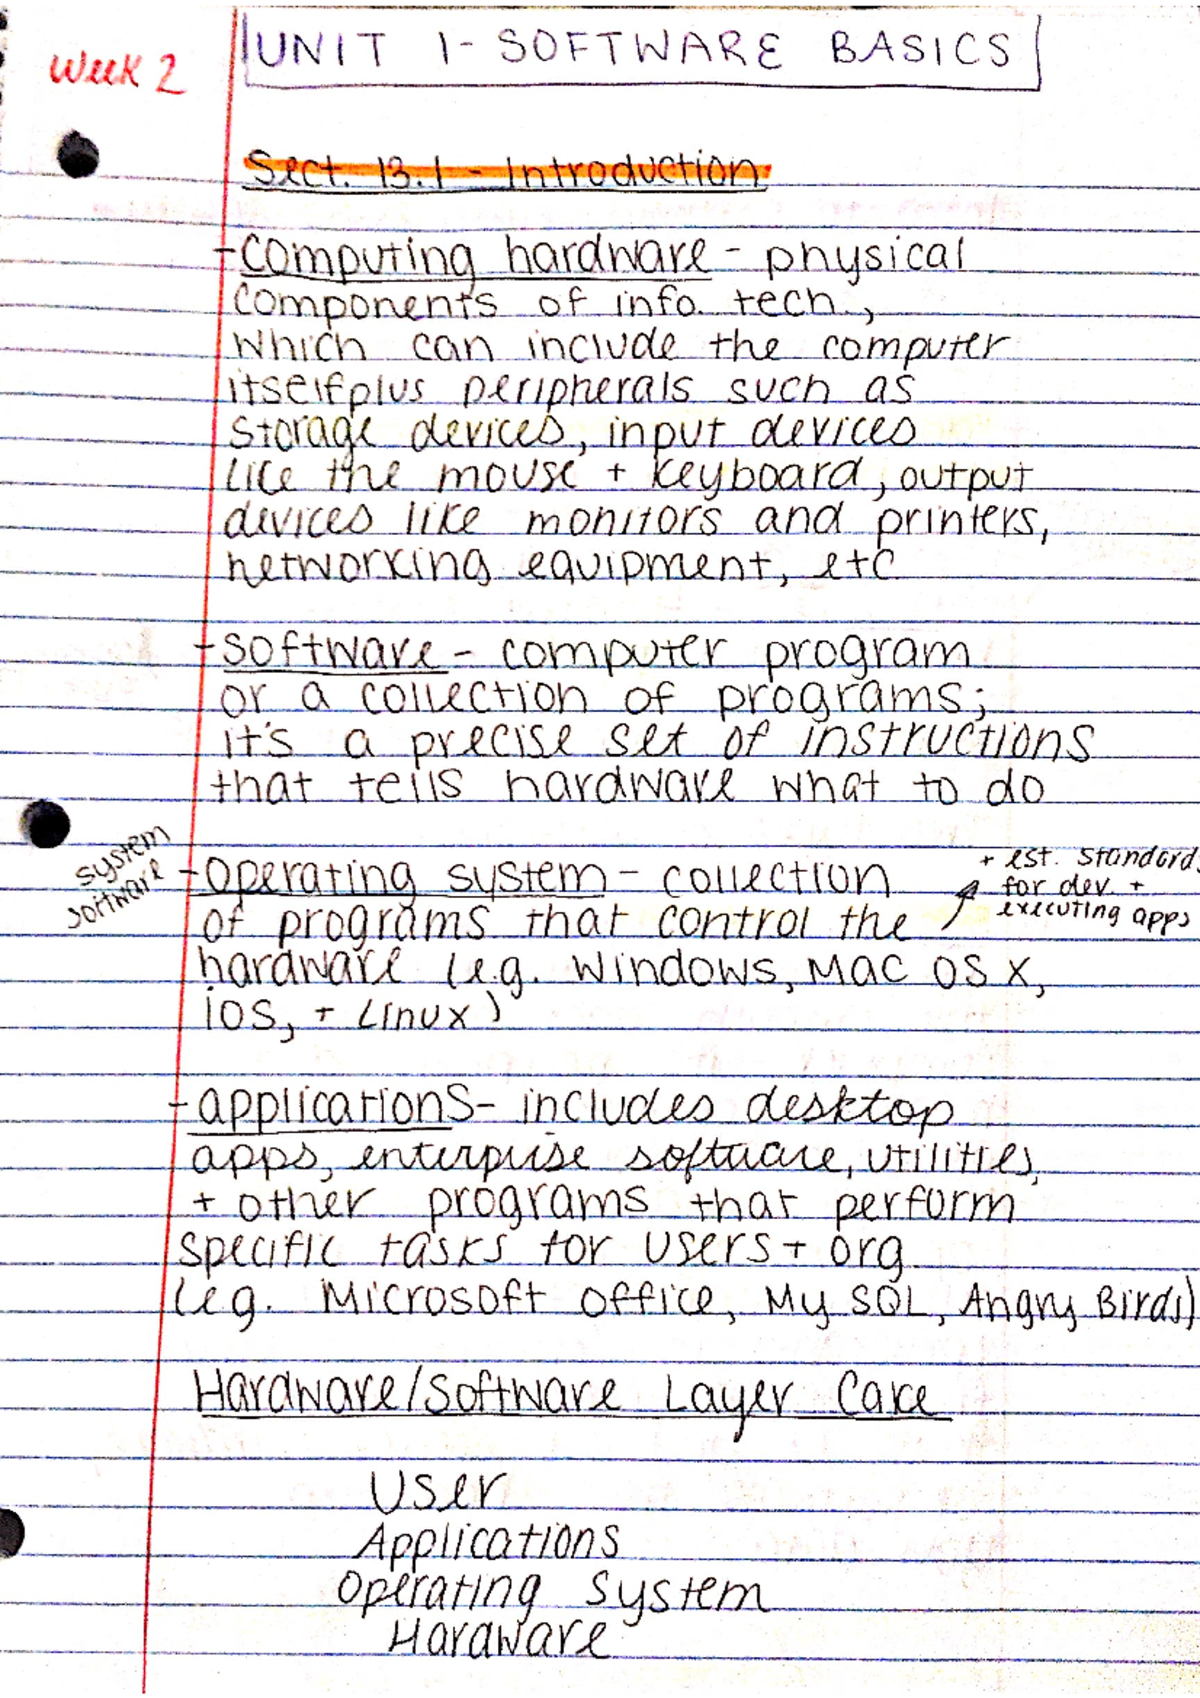 Week 2
UNIT 1 - SOFTWARE BASICS
Sect. 13.1 - Introduction
- computing hardware - physical
components of info. tech.,
which can include the computer
itself plus peripherals such as
storage devices, input devices
like the mouse + keyboard, output
devices like monitors and printers,
networking equipment, etc
- software - computer program
or a collection of programs;
it's a precise set of instructions
that tells hardware what to do
system
software
- operating system - collection
of programs that control the
+ est. standards
for dev. +
executing apps
hardware (e.g. Windows, Mac OS X,
iOS, + Linux)
- applications - includes desktop
apps, enterprise software, utilities,
+ other programs that perform
specific tasks for users + org
(e.g. Microsoft office, My SQL, Angry Birds)
Hardware/Software Layer Cake
User
Applications
Operating System
Hardware